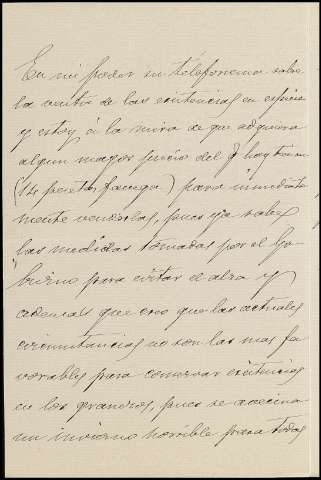 En mi poder su telefonema sobre
la venta de las existencias en especie
y estoy á la mira de que adquiera
algun mayor precio del q hoy tienen
(14 pesetas fanega) para inmediata
mente venderlas, pues ya sabes
las medidas tomadas por el Go
bierno para evitar el alza y
ademas que creo que las actuales
circunstancias no son las mas fa
vorables para conservar existencias
en los graneros, pues se avecina
un invierno horrible para todos